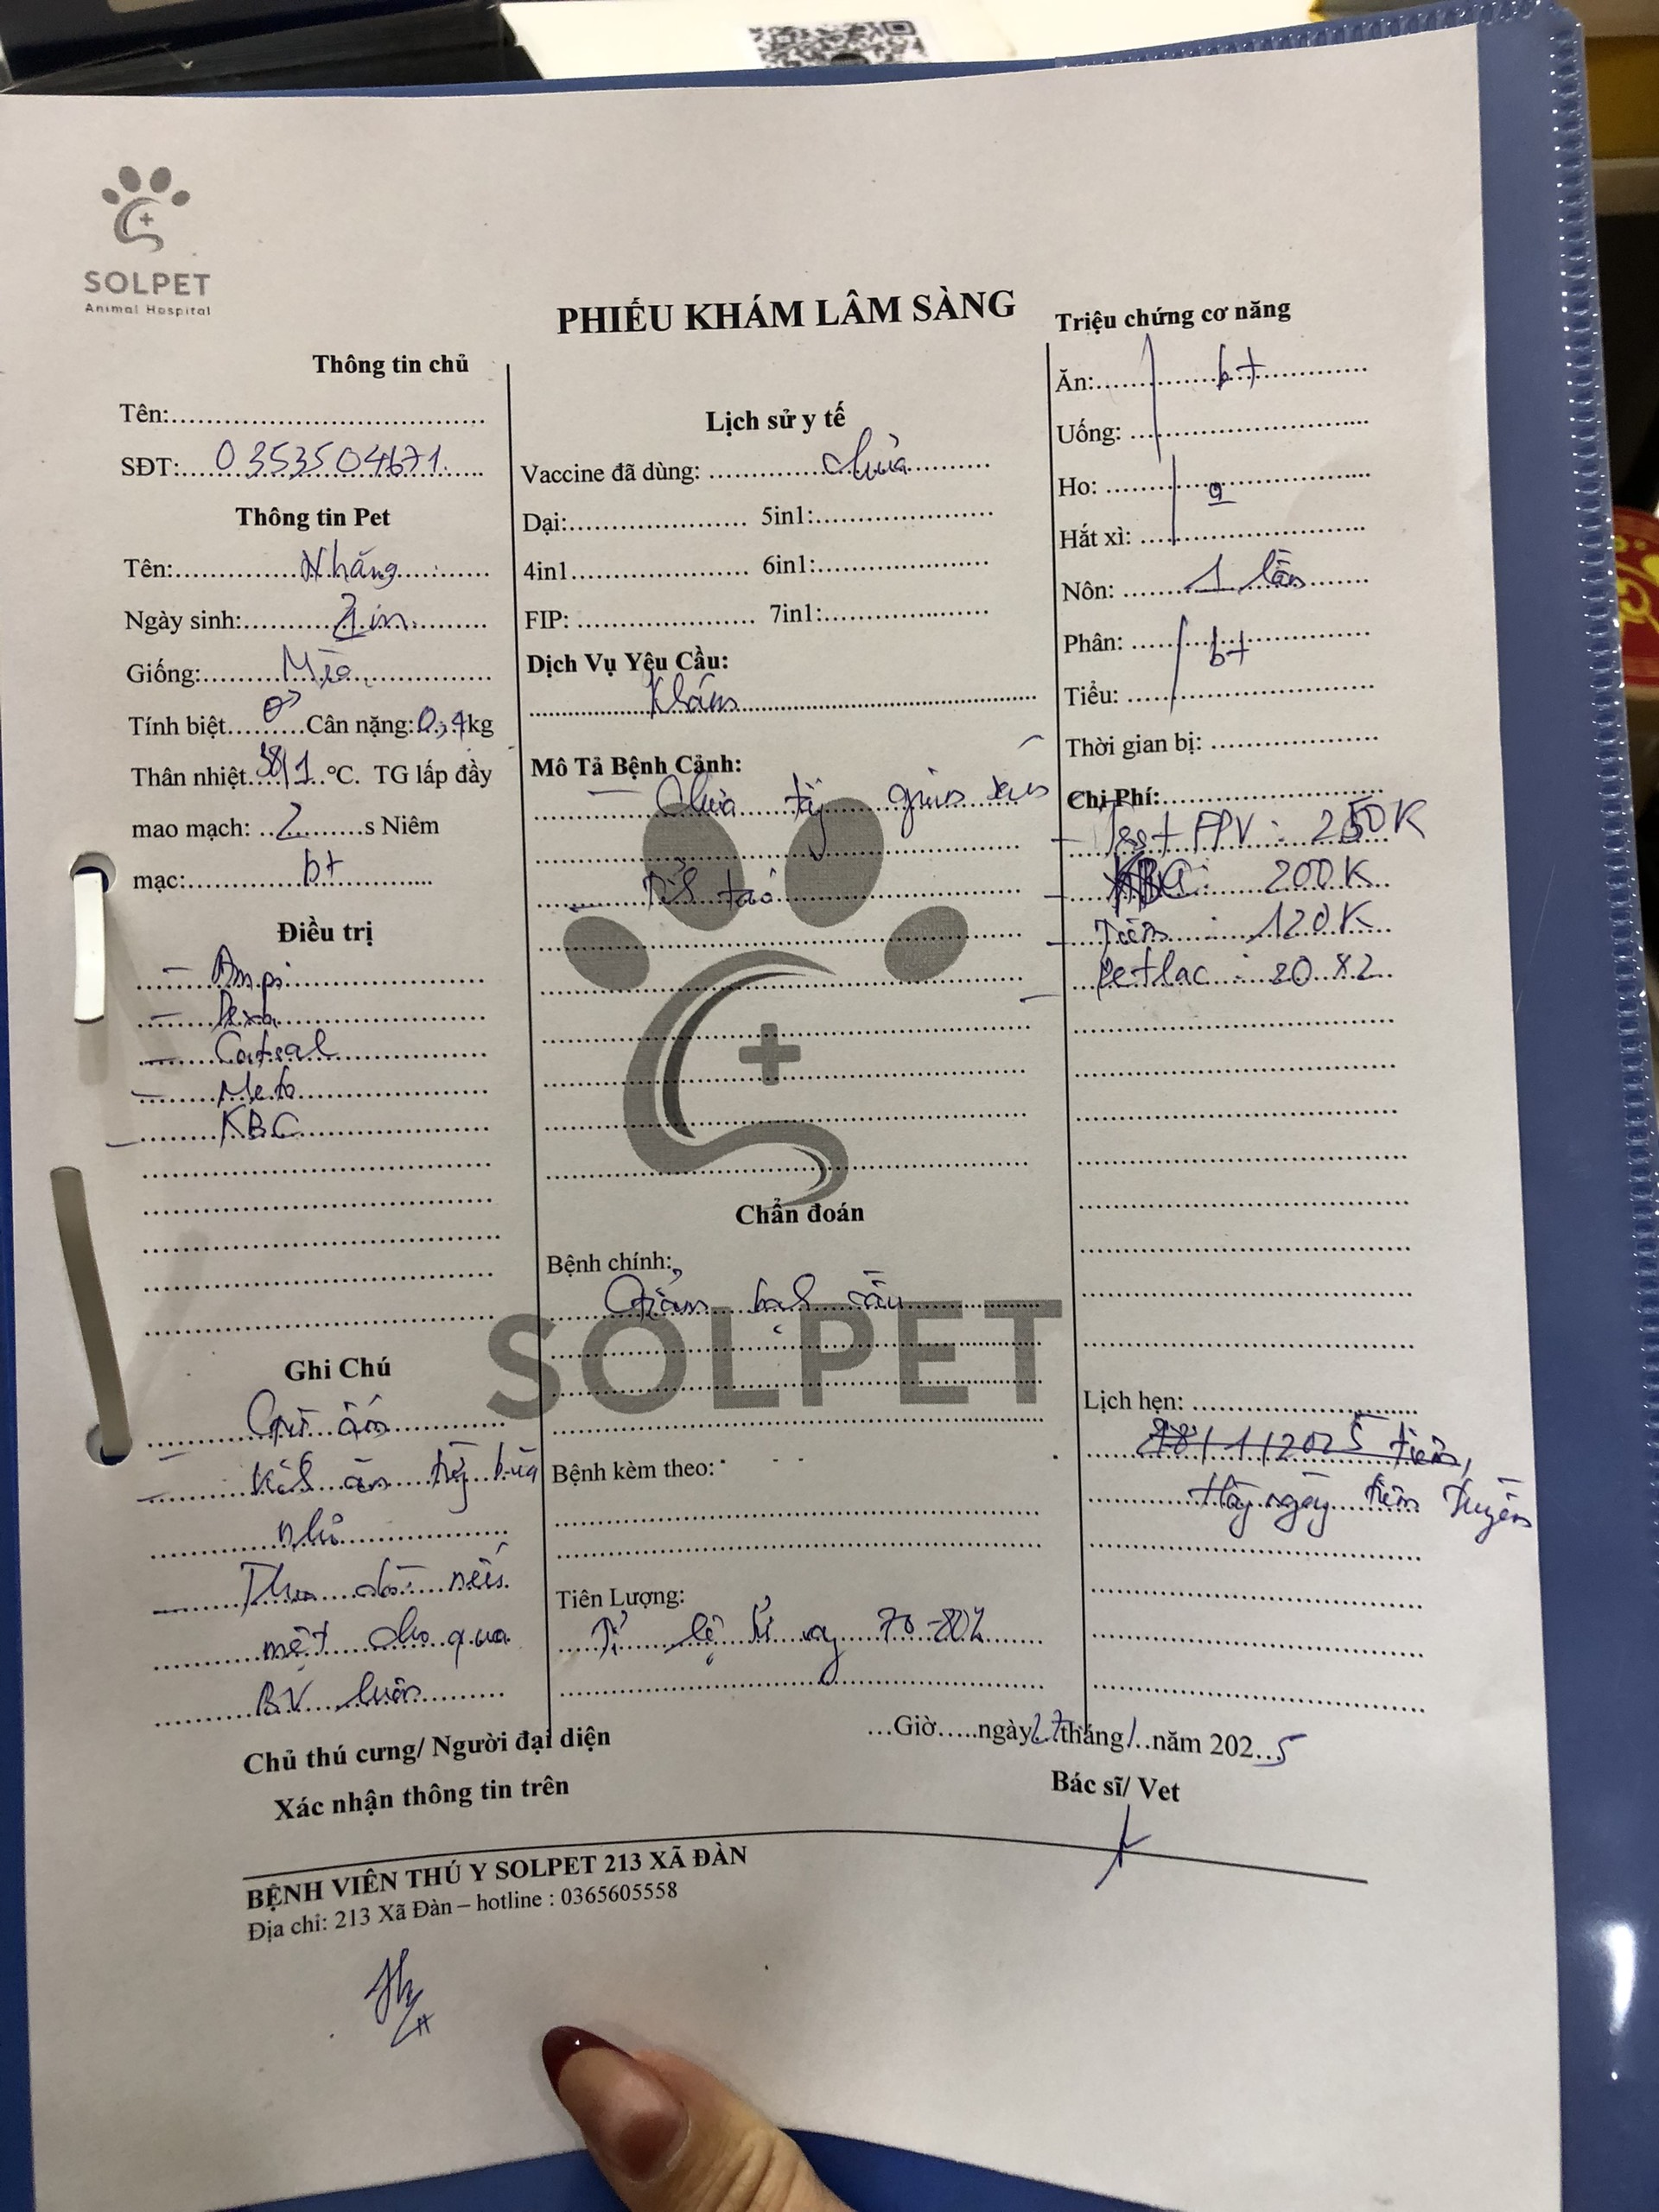 SOLPET
Animal Hospital
PHIẾU KHÁM LÂM SÀNG
Thông tin chủ
Tên:
SĐT: 0353504671
Thông tin Pet
Tên: Nhăng
Ngày sinh:
Giống: Mèo
Tính biệt ♂ Cân nặng: 0,4 kg
Thân nhiệt 38,1 °C. TG lấp đầy
mao mạch: 2 s Niêm
mạc: bt
Điều trị
- Ampi
- Dexa
- Catsal
- Meto
- KBC
Ghi Chú
Giữ ấm
- Kích ăn từng bữa
nhỏ
- Theo dõi nếu
mệt cho qua
BV luôn
Lịch sử y tế
Vaccine đã dùng: chưa
Dại: 5in1:
4in1 6in1:
FIP: 7in1:
Dịch Vụ Yêu Cầu:
Khám
Mô Tả Bệnh Cảnh:
- Chưa tẩy giun sán
- Tỉnh táo
SOLPET
Chẩn đoán
Bệnh chính:
Giảm bạch cầu
Bệnh kèm theo:
Tiên Lượng:
Tỉ lệ tử vong 70-80%
Triệu chứng cơ năng
Ăn: bt
Uống:
Ho:
Hắt xì:
Nôn: 1 lần
Phân: bt
Tiểu:
Thời gian bị:
Chi Phí:
- Test FPV: 250K
- KBC: 200K
- Tiêm: 120K
- Petlac: 20 x 2
Lịch hẹn:
28/1/2025 tiêm,
Hằng ngày tiêm truyền
...Giờ.....ngày 27 tháng 1 năm 2025
Chủ thú cưng/ Người đại diện
Xác nhận thông tin trên
Bác sĩ/ Vet
BỆNH VIÊN THÚ Y SOLPET 213 XÃ ĐÀN
Địa chỉ: 213 Xã Đàn – hotline : 0365605558